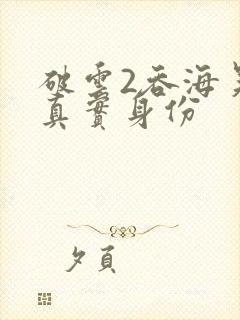 破云2吞海
真實身份
夕頁